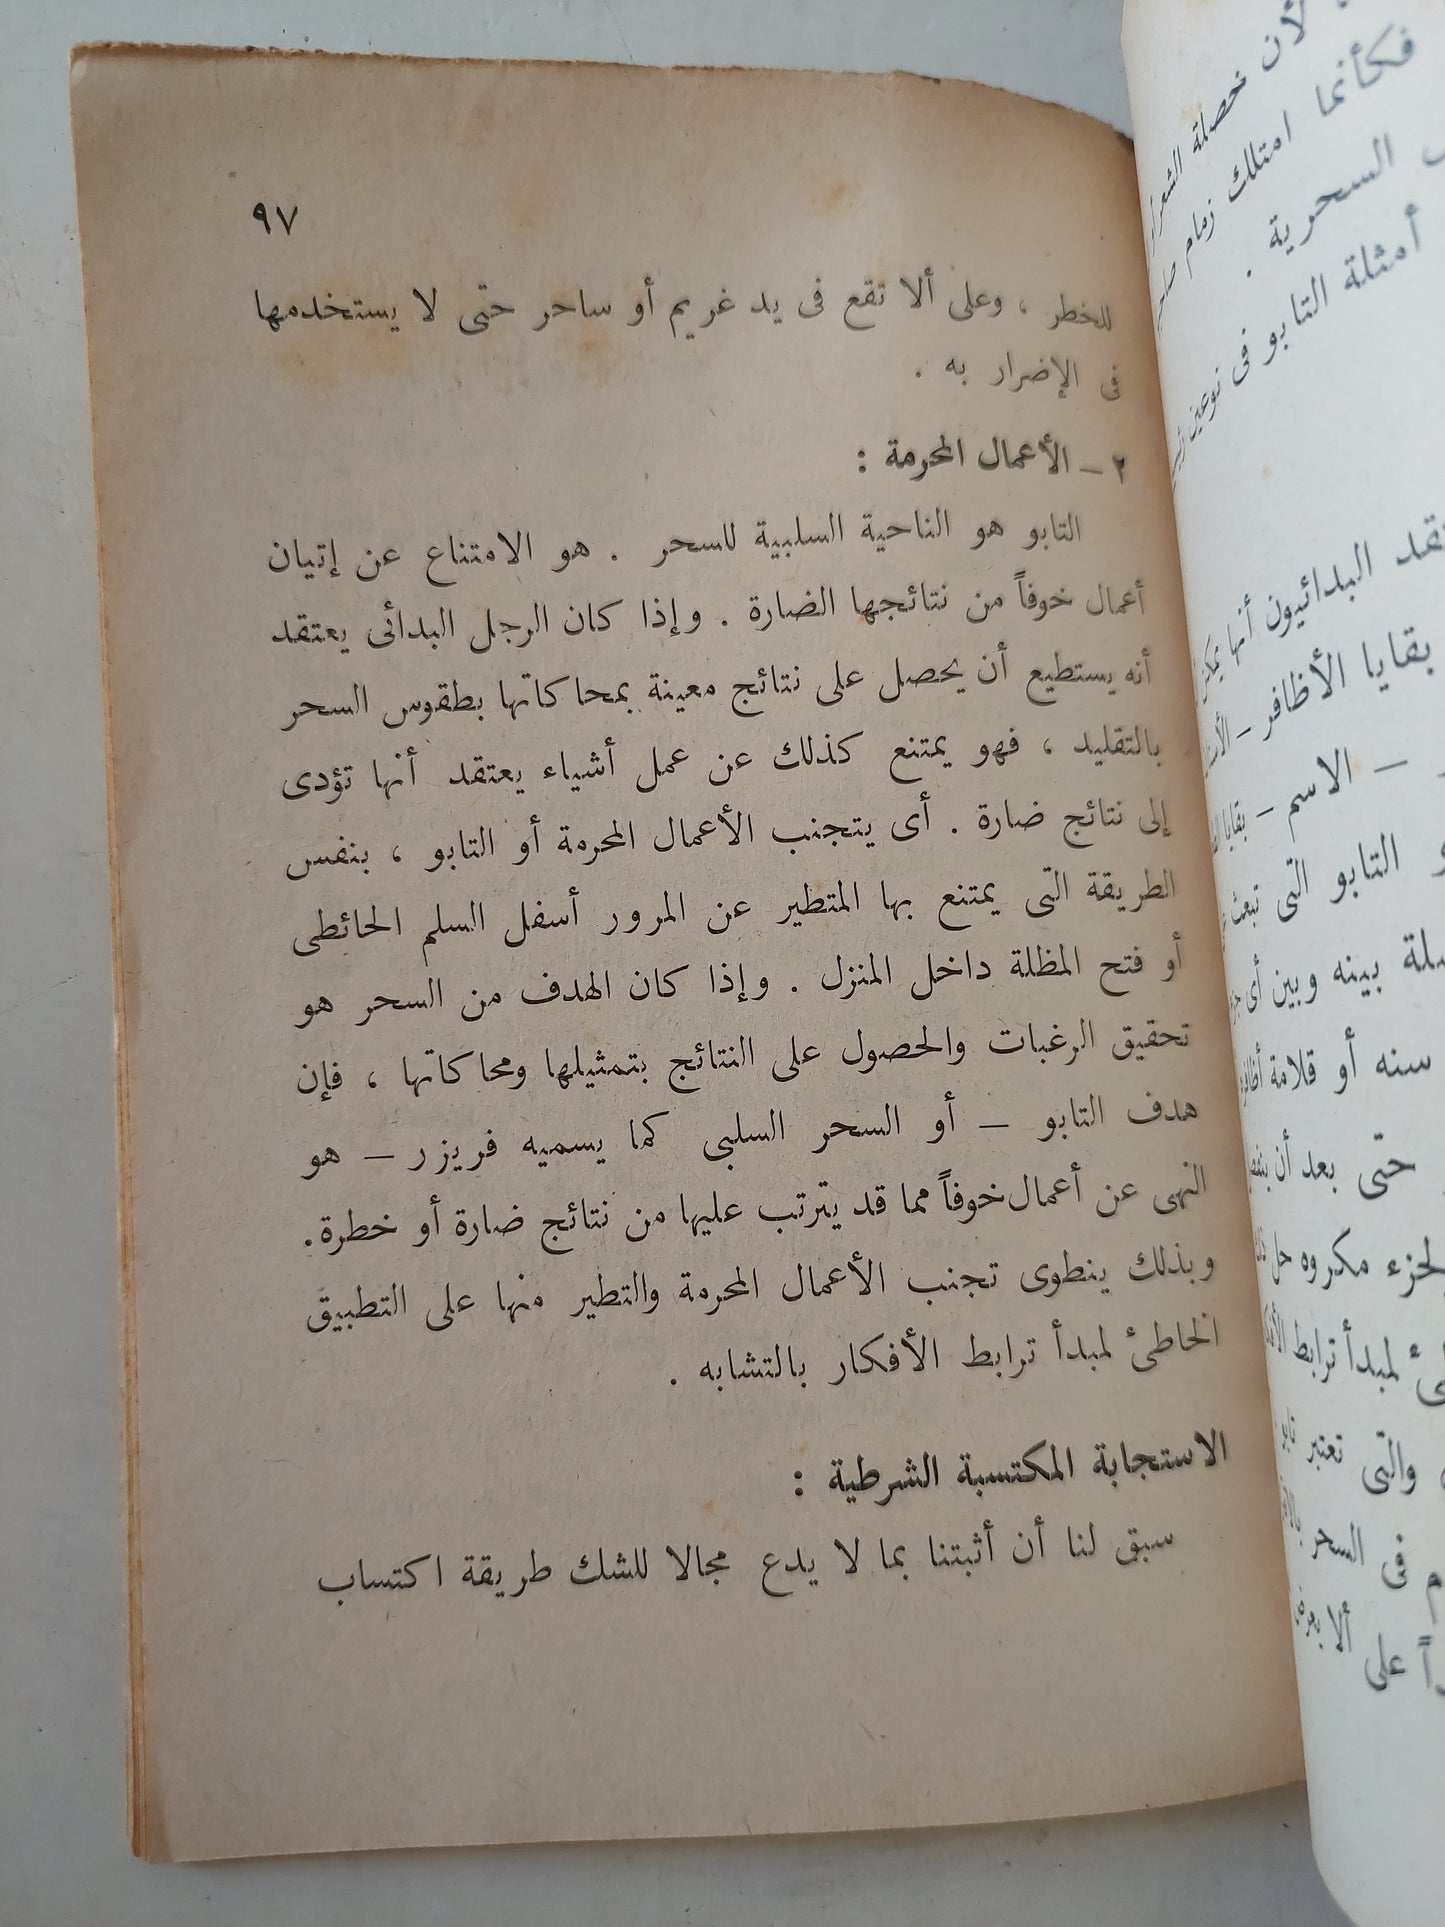 ٩٧
للخطر ، وعلى ألا تقع فى يد غريم أو ساحر حتى لا يستخدمها
فى الإضرار به .
٢ – الأعمال المحرمة :
التابو هو الناحية السلبية للسحر . هو الامتناع عن إتيان
أعمال خوفاً من نتائجها الضارة . وإذا كان الرجل البدائى يعتقد
أنه يستطيع أن يحصل على نتائج معينة بمحاكاتها بطقوس السحر
بالتقليد ، فهو يمتنع كذلك عن عمل أشياء يعتقد أنها تؤدى
إلى نتائج ضارة . أى يتجنب الأعمال المحرمة أو التابو ، بنفس
الطريقة التى يمتنع بها المتطير عن المرور أسفل السلم الحائطى
أو فتح المظلة داخل المنزل . وإذا كان الهدف من السحر هو
تحقيق الرغبات والحصول على النتائج بتمثيلها ومحاكاتها ، فإن
هدف التابو – أو السحر السلبى كما يسميه فريزر – هو
النهى عن أعمال خوفاً مما قد يترتب عليها من نتائج ضارة أو خطرة.
وبذلك ينطوى تجنب الأعمال المحرمة والتطير منها على التطبيق
الخاطئ لمبدأ ترابط الأفكار بالتشابه .
الاستجابة المكتسبة الشرطية :
سبق لنا أن أثبتنا بما لا يدع مجالا للشك طريقة اكتساب
فكأنما امتلك زمام
السحرية .
أمثلة التابو فى نوعين
البدائيون أنها
بقايا الأظافر –
– الاسم – بقايا
التابو التى تبعث
بينه وبين أى
سنه أو قلامة
حتى بعد أن
مكروه حل
لمبدأ ترابط
والتى تعتبر
فى السحر
على ألا